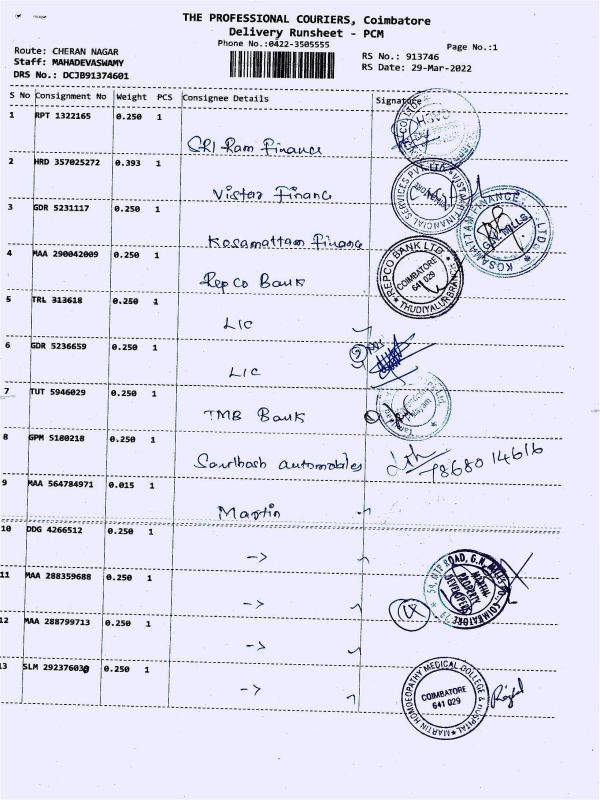 THE PROFESSIONAL COURIERS, Coimbatore
Delivery Runsheet - PCM
Phone No.:0422-3505555
Page No.:1
Route: CHERAN NAGAR
Staff: MAHADEVASWAMY
DRS No.: DCJB91374601
RS No.: 913746
RS Date: 29-Mar-2022
S No Consignment No Weight PCS Consignee Details Signature
1 RPT 1322165 0.250 1
SRI Ram Finance
2 HRD 357025272 0.393 1
Vistar Finance
3 GDR 5231117 0.250 1
Kosamattam Finance
4 MAA 290042009 0.250 1
Repco Bank
5 TRL 313618 0.250 1
LIC
6 GDR 5236659 0.250 1
LIC
7 TUT 5946029 0.250 1
TMB Bank
8 GPM 5180218 0.250 1
automobiles
9 MAA 564784971 0.015 1
Martin
10 DDG 4266512 0.250 1
11 MAA 288359688 0.250 1
12 MAA 288799713 0.250 1
13 SLM 292376030 0.250 1
KOSAMATTAM FINANCE LTD.
REPCO BANK LTD.
COIMBATORE
641 029
THUDIYALUR BRANCH
78680 14616
MARTIN
PROPERTY
DEVELOPERS
MARTIN HOMOEOPATHY MEDICAL COLLEGE & HOSPITAL
COIMBATORE
641 029